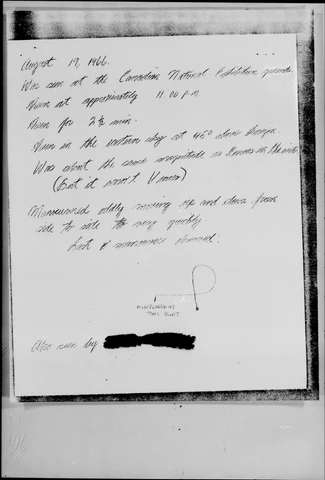 August 19, 1966.
Was seen at the Canadian National Exhibition grounds
Seen at approximately 11.00 p.m.
Seen for 2½ min.
Seen in the western sky at 45° above horizon.
Was about the same magnitude as Venus in the
(But it wasn't Venus)
Manouvered oddly moving up and down from
side to side very quickly.
of manouvers observed.
Also seen by